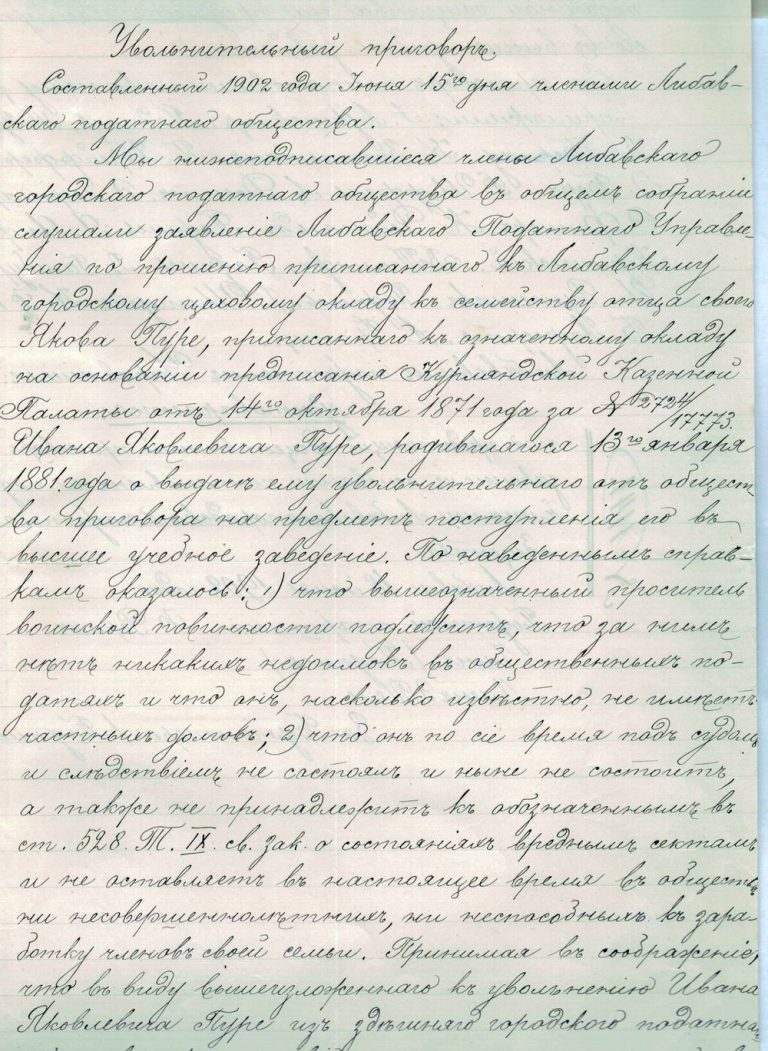 Увольнительный приговоръ.
Составленный 1902 года Іюня 15го дня членами Либав-
скаго податнаго общества.
Мы нижеподписавшіеся члены Либавскаго
городскаго податнаго общества въ общемъ собраніи
слушали заявленіе Либавскаго Податнаго Управле-
нія по прошенію приписаннаго къ Либавскому
городскому цеховому окладу къ семейству отца своего
Якова Пуре, приписаннаго къ означенному окладу
на основаніи предписанія Курляндской Казенной
Палаты отъ 14го октября 1871 года за № 2724/17773.
Ивана Яковлевича Пуре, родившагося 13го января
1881 года о выдачѣ ему увольнительнаго отъ общест-
ва приговора на предметъ поступленія его въ
высшее учебное заведеніе. По наведеннымъ справ-
камъ оказалось: 1) что вышеозначенный проситель
воинской повинности подлежитъ, что за нимъ
нѣтъ никакихъ недоимокъ въ общественныхъ по-
датяхъ и что онъ, насколько извѣстно, не имѣетъ
частныхъ долговъ; 2) что онъ по сіе время подъ судомъ
и слѣдствіемъ не состоялъ и ныне не состоитъ,
а также не принадлежитъ къ обозначеннымъ въ
ст. 528. Т. IX. св. зак. о состояніяхъ вреднымъ сектамъ
и не оставляетъ въ настоящее время въ обществѣ
ни несовершеннолѣтнихъ, ни неспособныхъ къ зара-
ботку членовъ своей семьи. Принимая въ соображеніе,
что въ виду вышеизложеннаго къ увольненію Ивана
Яковлевича Пуре изъ здѣшняго городского податна-